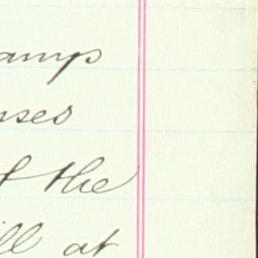 amps
nses
f the
ill at